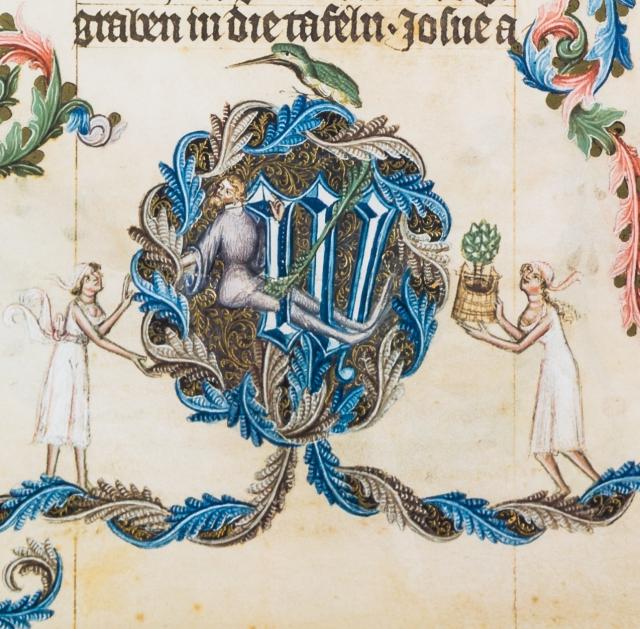 graben in die tafeln · Josue a
W